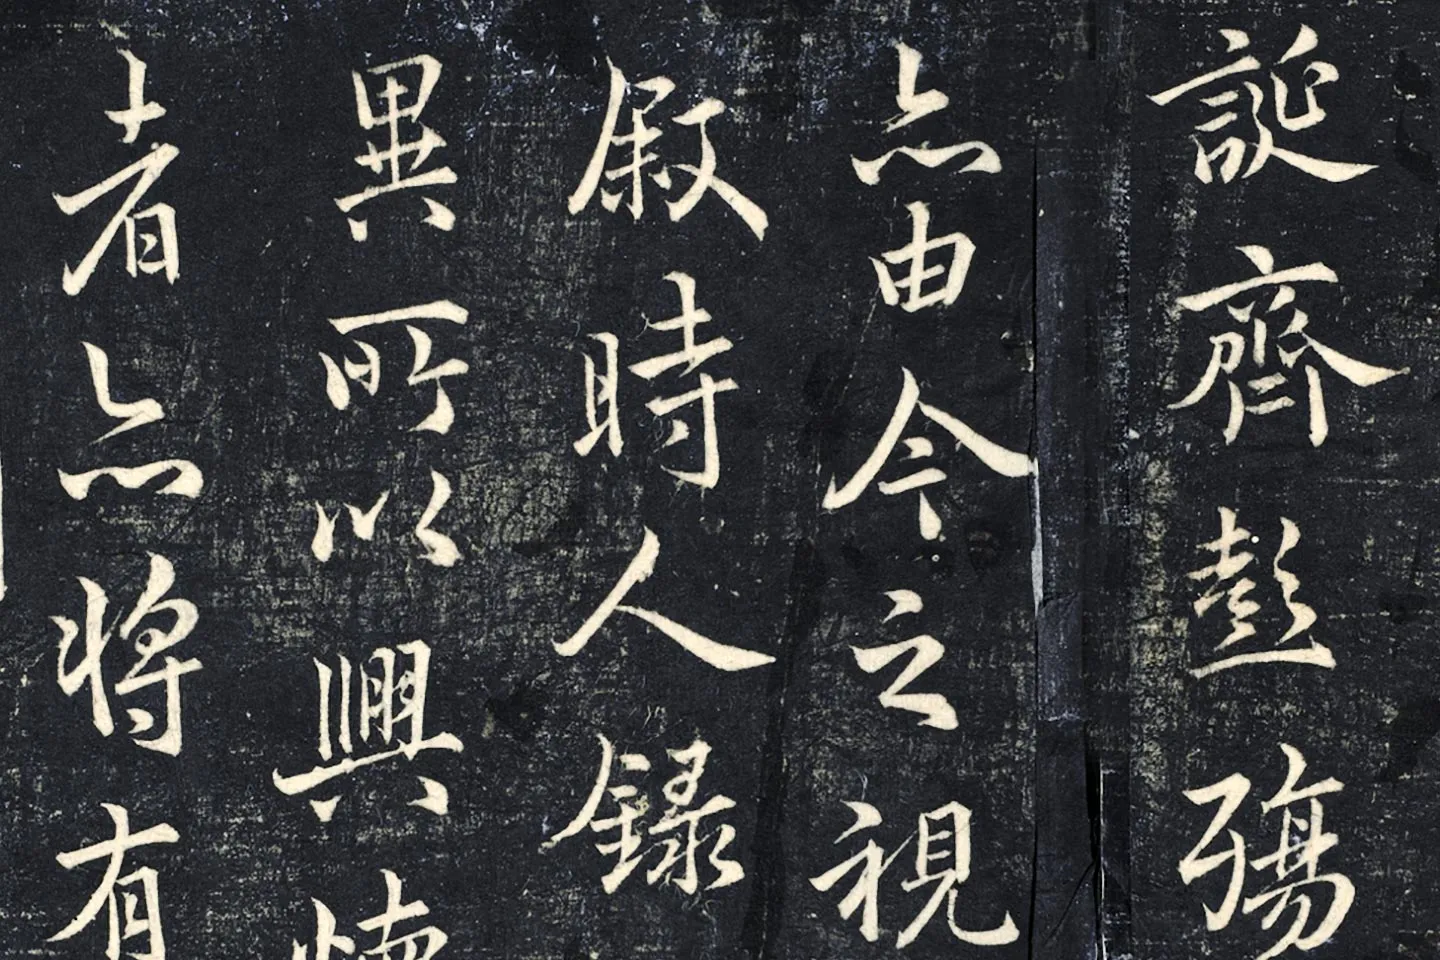 誕齊彭殤
亦由今之視
叙時人錄
異所以興懷
者亦將有